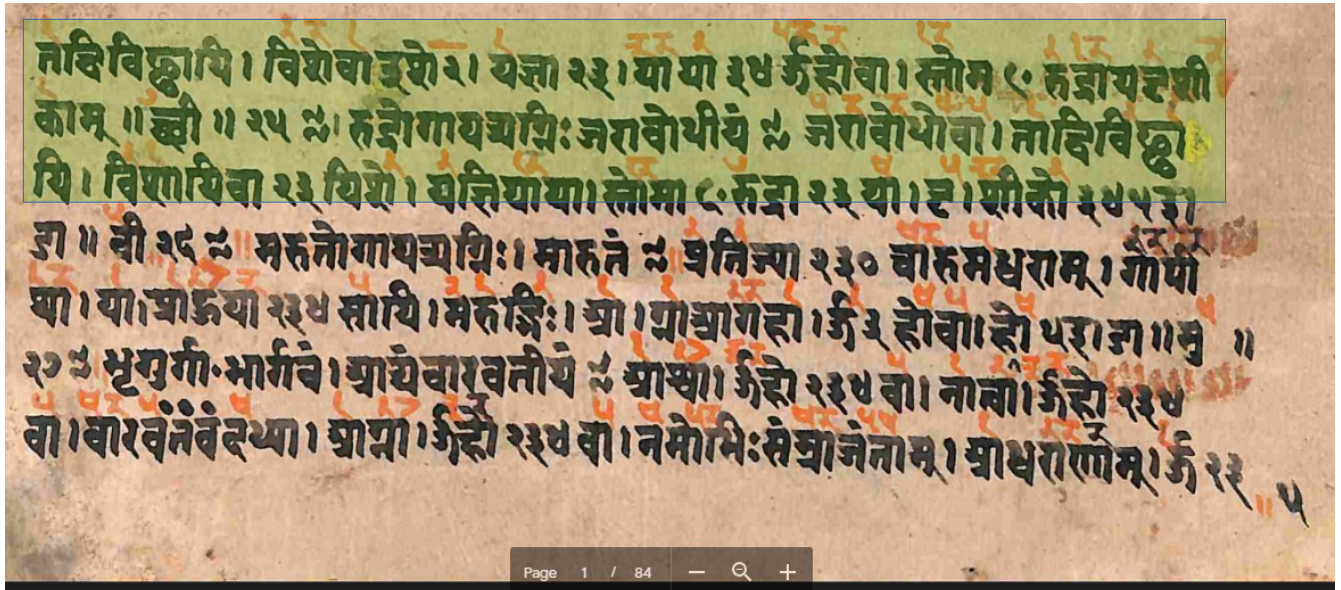 ताद्विविड्ढायि। विशेवाइशे२। यज्ञा २३। या या ३४ औहोवा। स्तोम ९· रुद्रायदृशी
काम् ॥ ख्वी ॥ २५ ॥ रुद्रोगायत्र्यग्निः जराबोधीयं ॥ जराबोधोवा। ताद्विविड्ढा
यि। विशायिवा २३ यिशे। यज्ञियाया। स्तोमा ९· रुद्रा २३ या। दृ। शीको ३४५ इ।
डा ॥ वी २६ ॥ मरुतोगायत्र्यग्निः। मारुतं ॥ प्रतित्या २३० चारुमध्वराम्। गोपी
था। या। प्राहूया २३४ सायि। मरुद्भिः। आ। ग्नाआगहा। औ३ होवा। हो ५ इ। डा ॥ मु ॥
२७ ॥ भृगुर्गा· भार्गवं। वारवतीयं ॥ अश्वा। औहो २३४ वा। नात्वा। औहो २३४
वा। वारवंतंवंदध्या। आग्ना। औहो २३४ वा। नमोभिः संम्राजंताम्। आध्वराणाम्। औ २३ ५
Page 1 / 84